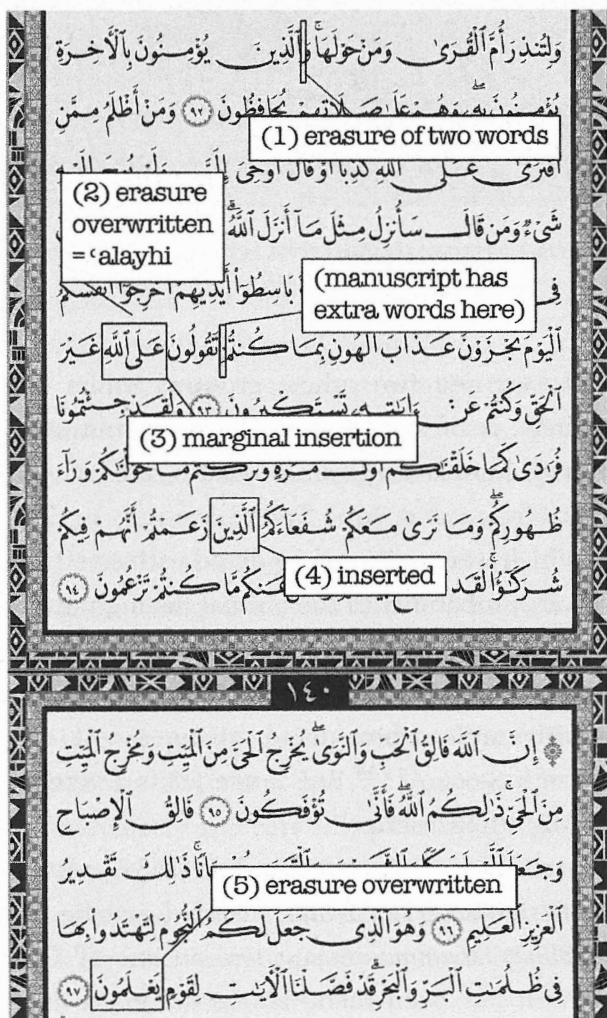 وَلِتُنذِرَ أُمَّ ٱلْقُرَىٰ وَمَنْ حَوْلَهَا ۚ وَٱلَّذِينَ يُؤْمِنُونَ بِٱلْـَٔاخِرَةِ
يُؤْمِنُونَ بِهِۦ ۖ وَهُمْ عَلَىٰ صَلَاتِهِمْ يُحَافِظُونَ ٩٢ وَمَنْ أَظْلَمُ مِمَّنِ
(1) erasure of two words
ٱفْتَرَىٰ عَلَى ٱللَّهِ كَذِبًا أَوْ قَالَ أُوحِىَ
(2) erasure
overwritten
=ʿalayhi
شَىْءٌ وَمَن قَالَ سَأُنزِلُ مِثْلَ مَآ أَنزَلَ ٱللَّهُ ۗ
(manuscript has
extra words here)
فِى بَاسِطُوٓا۟ أَيْدِيهِمْ أَخْرِجُوٓا۟ أَنفُسَكُمُ
ٱلْيَوْمَ تُجْزَوْنَ عَذَابَ ٱلْهُونِ بِمَا كُنتُمْ تَقُولُونَ عَلَى ٱللَّهِ غَيْرَ
ٱلْحَقِّ وَكُنتُمْ عَنْ ءَايَـٰتِهِۦ تَسْتَكْبِرُونَ ٩٣ وَلَقَدْ جِئْتُمُونَا
(3) marginal insertion
فُرَٰدَىٰ كَمَا خَلَقْنَـٰكُمْ أَوَّلَ مَرَّةٍ وَتَرَكْتُم مَّا خَوَّلْنَـٰكُمْ وَرَآءَ
ظُهُورِكُمْ ۖ وَمَا نَرَىٰ مَعَكُمْ شُفَعَآءَكُمُ ٱلَّذِينَ زَعَمْتُمْ أَنَّهُمْ فِيكُمْ
(4) inserted
شُرَكَـٰٓؤُا۟ ۚ لَقَد عَنكُم مَّا كُنتُمْ تَزْعُمُونَ ٩٤
١٤٠
۞ إِنَّ ٱللَّهَ فَالِقُ ٱلْحَبِّ وَٱلنَّوَىٰ ۖ يُخْرِجُ ٱلْحَىَّ مِنَ ٱلْمَيِّتِ وَمُخْرِجُ ٱلْمَيِّتِ
مِنَ ٱلْحَىِّ ۚ ذَٰلِكُمُ ٱللَّهُ ۖ فَأَنَّىٰ تُؤْفَكُونَ ٩٥ فَالِقُ ٱلْإِصْبَاحِ
وَجَعَلَ ذَٰلِكَ تَقْدِيرُ
(5) erasure overwritten
ٱلْعَزِيزِ ٱلْعَلِيمِ ٩٦ وَهُوَ ٱلَّذِى جَعَلَ لَكُمُ ٱلنُّجُومَ لِتَهْتَدُوا۟ بِهَا
فِى ظُلُمَـٰتِ ٱلْبَرِّ وَٱلْبَحْرِ ۗ قَدْ فَصَّلْنَا ٱلْـَٔايَـٰتِ لِقَوْمٍ يَعْلَمُونَ ٩٧